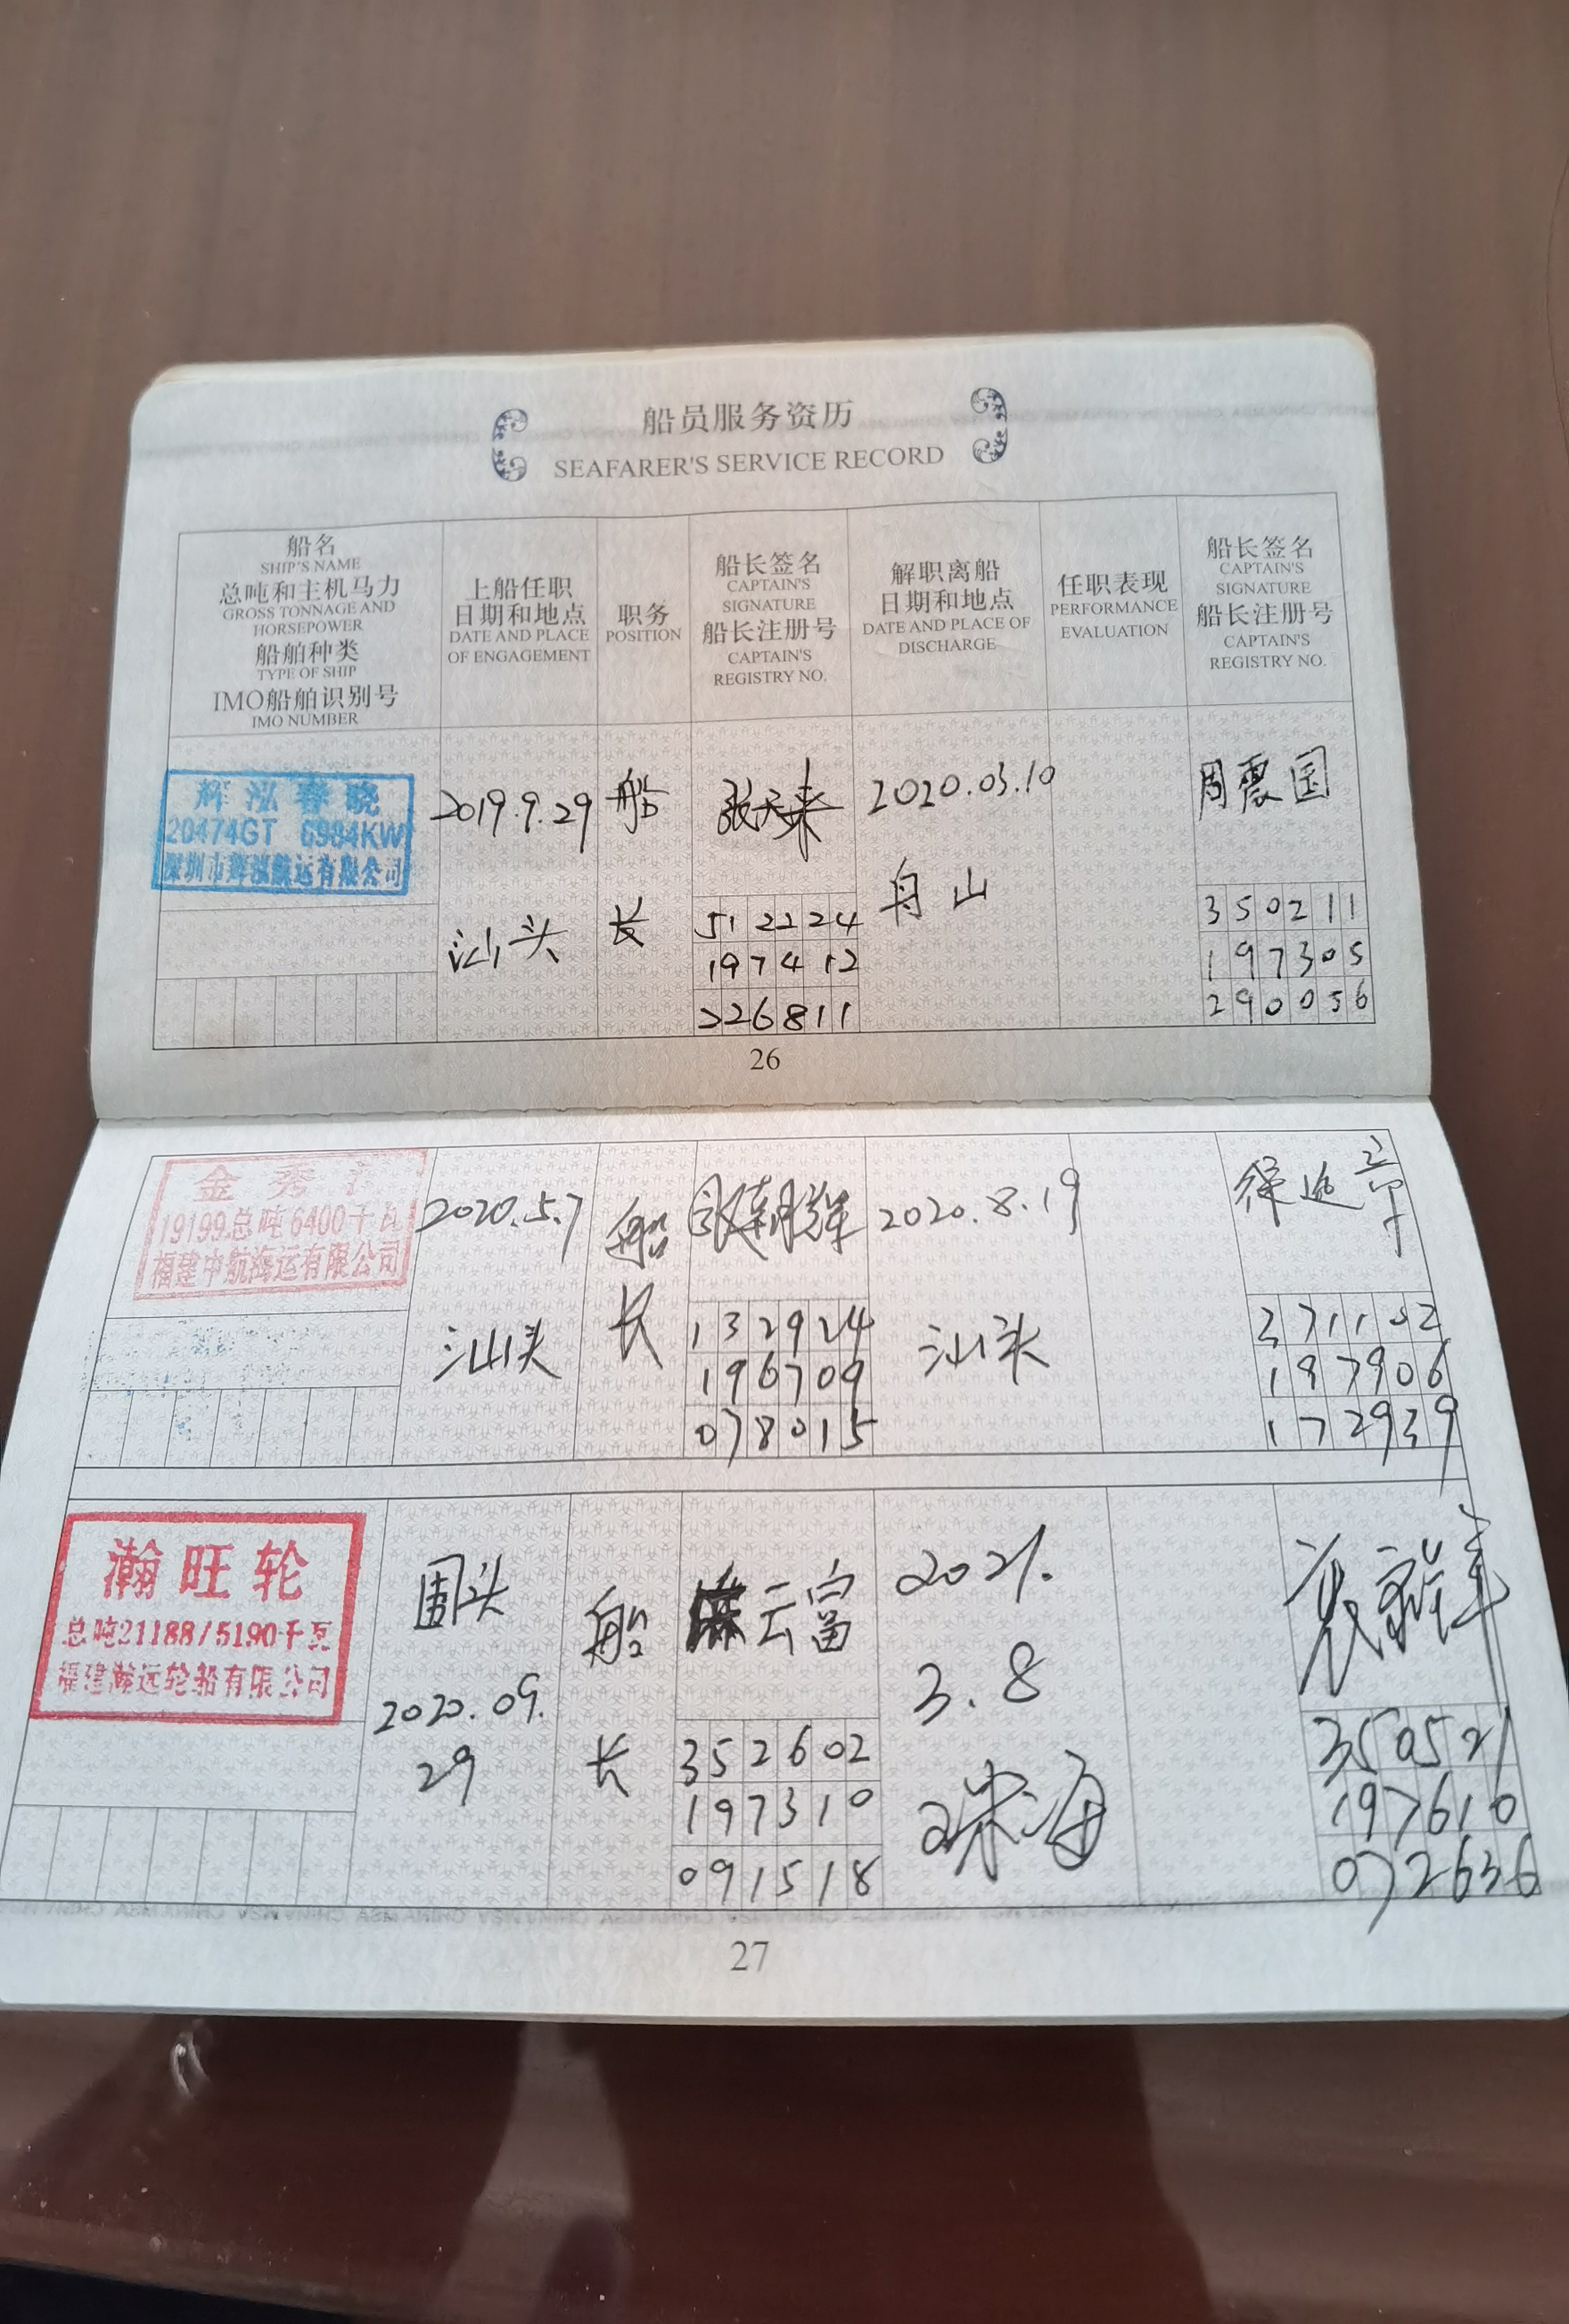 船员服务资历
SEAFARER'S SERVICE RECORD
船名
SHIP'S NAME
总吨和主机马力
GROSS TONNAGE AND
HORSEPOWER
船舶种类
TYPE OF SHIP
IMO船舶识别号
IMO NUMBER
上船任职
日期和地点
DATE AND PLACE
OF ENGAGEMENT
职务
POSITION
船长签名
CAPTAIN'S
SIGNATURE
船长注册号
CAPTAIN'S
REGISTRY NO.
解职离船
日期和地点
DATE AND PLACE OF
DISCHARGE
任职表现
PERFORMANCE
EVALUATION
船长签名
CAPTAIN'S
SIGNATURE
船长注册号
CAPTAIN'S
REGISTRY NO.
辉泓春晓
20474GT 6984KW
深圳市辉泓航运有限公司
2019.9.29
汕头
船
长
张天来
512224
197412
226811
2020.03.10
舟山
周震国
350211
197305
290056
26
金秀
19199总吨6400千瓦
福建中航海运有限公司
2020.5.7
汕头
船
长
132924
196709
078015
2020.8.19
汕头
371102
197906
172939
瀚旺轮
总吨21188/5190千瓦
福建瀚远轮船有限公司
围头
2020.09.
29
船
长
云富
352602
197310
091518
2021.
3.8
珠海
350521
197610
072636
27